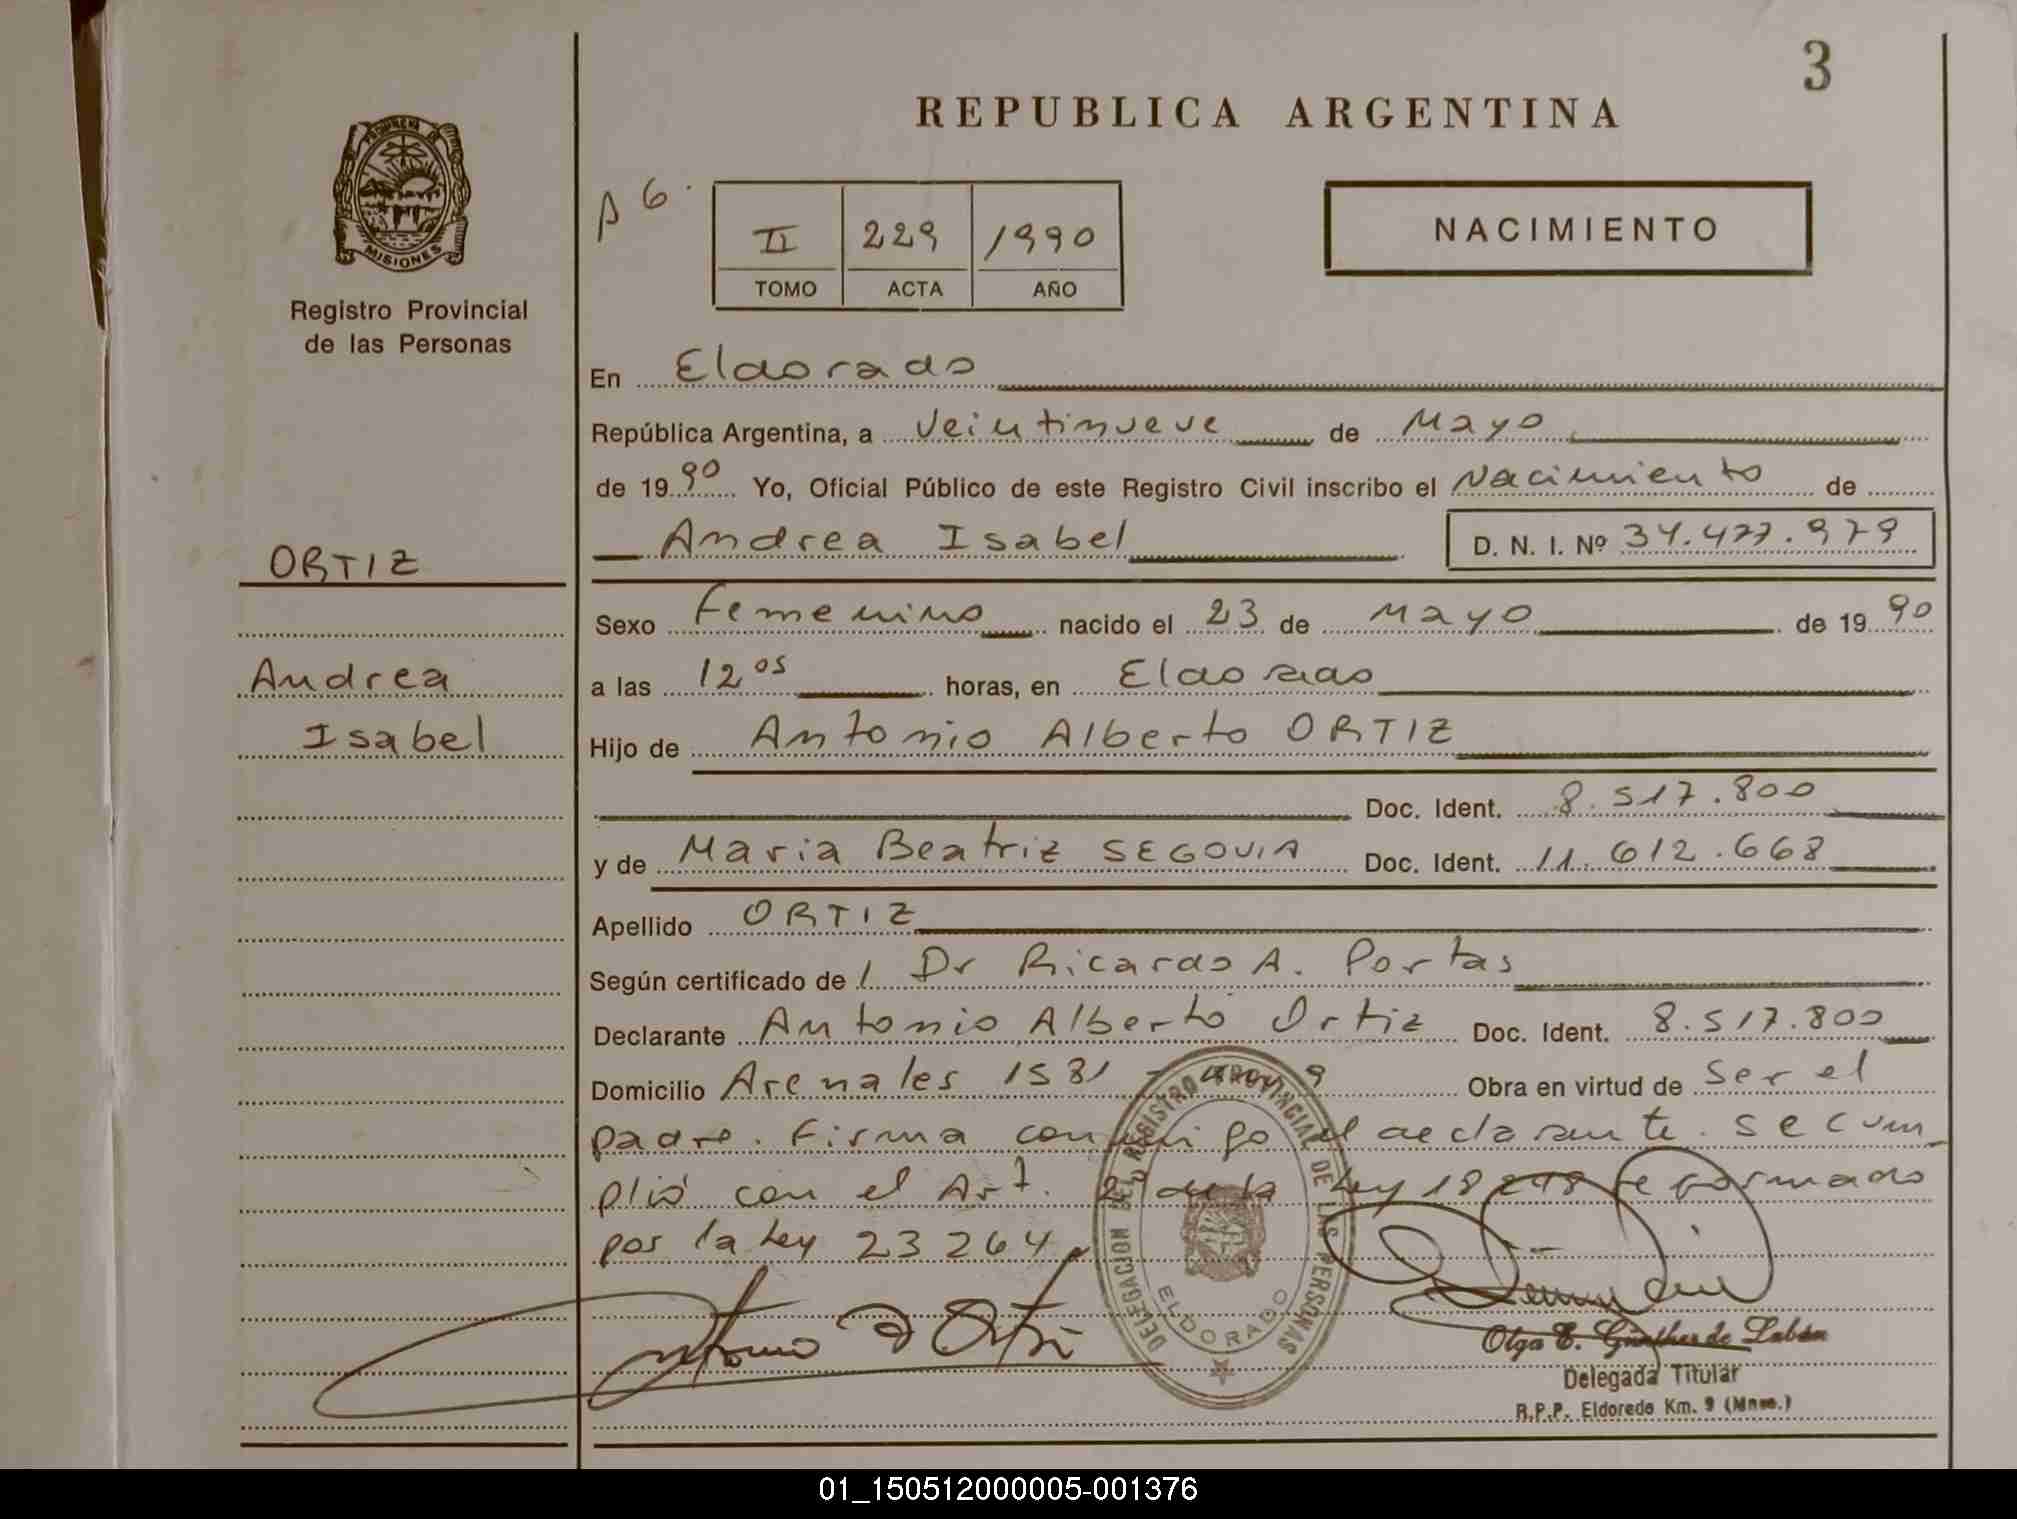 3
REPUBLICA ARGENTINA
PROVINCIA DE
MISIONES
Registro Provincial
de las Personas
II 229 1990
TOMO ACTA AÑO
NACIMIENTO
En Eldorado
República Argentina, a veintinueve de Mayo
de 1990 Yo, Oficial Público de este Registro Civil inscribo el Nacimiento de
Andrea Isabel D. N. I. Nº 34.477.979
ORTIZ
Andrea
Isabel
Sexo Femenino nacido el 23 de Mayo de 1990
a las 12 05 horas, en Eldorado
Hijo de Antonio Alberto ORTIZ
Doc. Ident. 8.517.800
y de Maria Beatriz SEGOVIA Doc. Ident. 11.612.668
Apellido ORTIZ
Según certificado de l Dr Ricardo A. Portas
Declarante Antonio Alberto Ortiz Doc. Ident. 8.517.800
Domicilio Arenales 1581 - 9 Obra en virtud de ser el
padre. Firma conmigo el declarante. Se cum
plió con el Art. de la Ley 18248 reformado
por la Ley 23264
DELEGACION DEL REGISTRO PROVINCIAL DE LAS PERSONAS
ELDORADO
Antonio A Ortiz
Olga E. Günther de Labán
Delegada Titular
R.P.P. Eldorado Km. 9 (Mnes.)
01_150512000005-001376